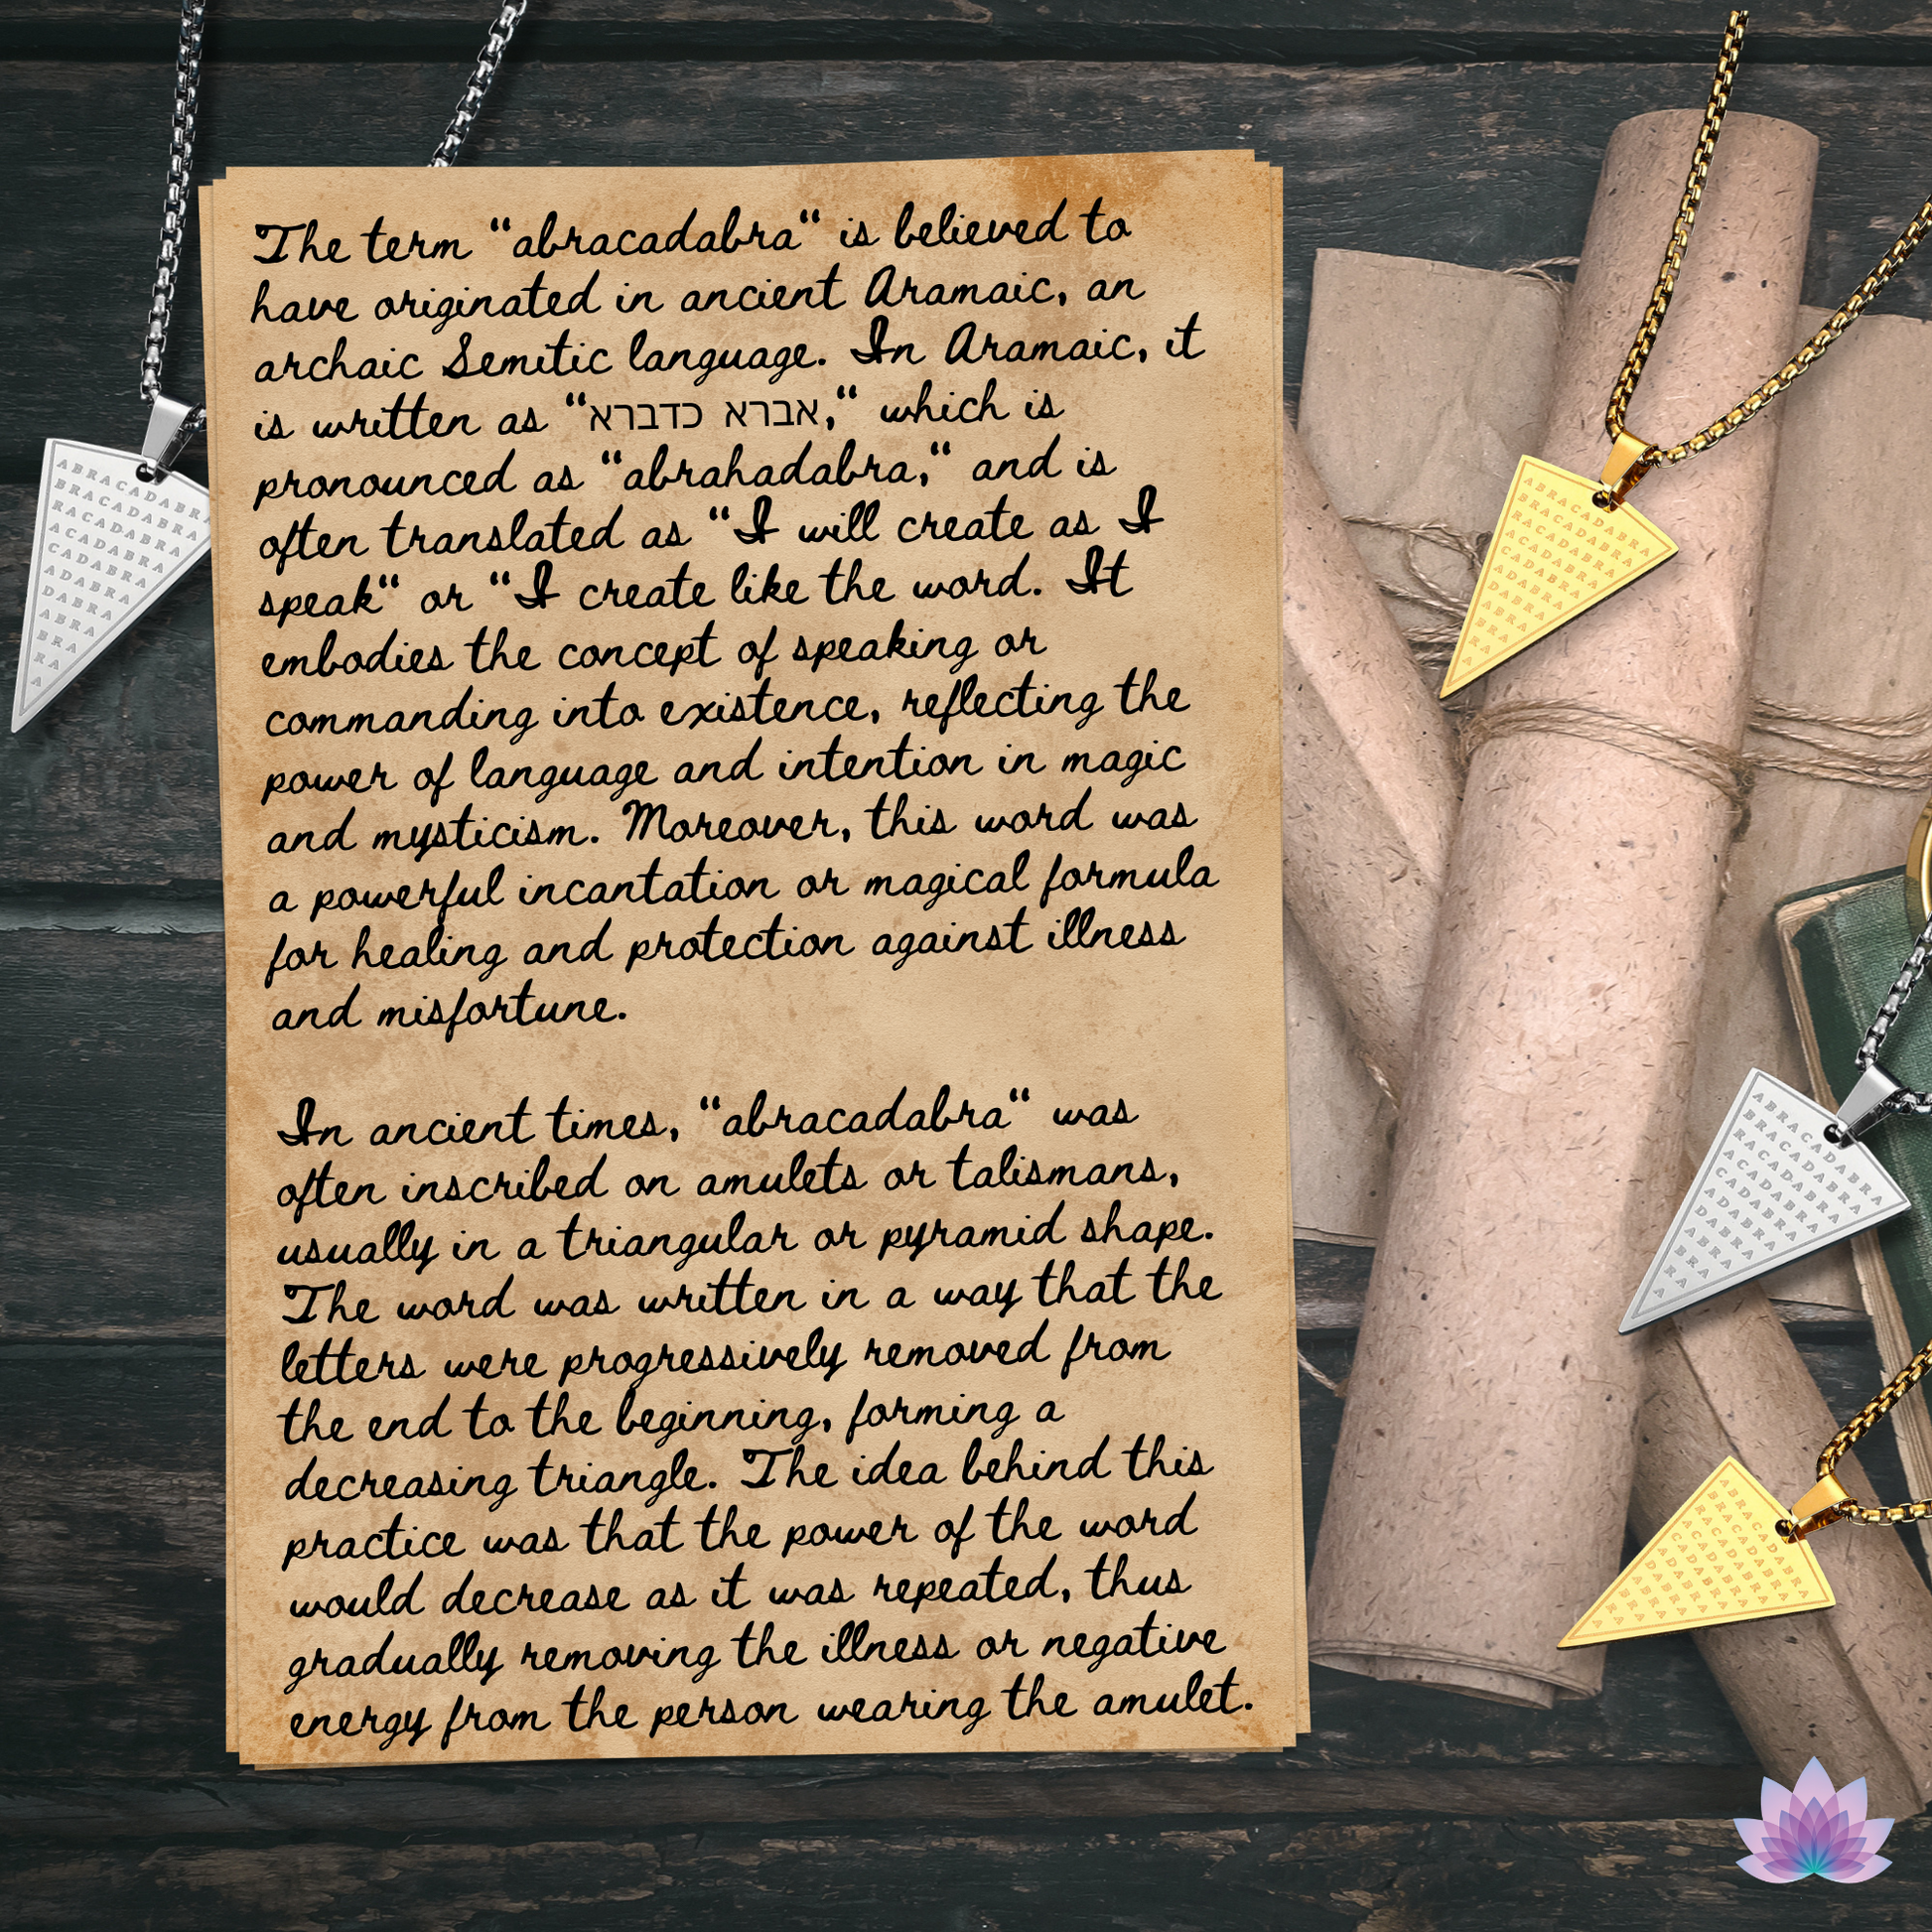 The term "abracadabra" is believed to
have originated in ancient Aramaic, an
archaic Semitic language. In Aramaic, it
is written as "אברא כדברא," which is
pronounced as "abrahadabra," and is
often translated as "I will create as I
speak" or "I create like the word. It
embodies the concept of speaking or
commanding into existence, reflecting the
power of language and intention in magic
and mysticism. Moreover, this word was
a powerful incantation or magical formula
for healing and protection against illness
and misfortune.
In ancient times, "abracadabra" was
often inscribed on amulets or talismans,
usually in a triangular or pyramid shape.
The word was written in a way that the
letters were progressively removed from
the end to the beginning, forming a
decreasing triangle. The idea behind this
practice was that the power of the word
would decrease as it was repeated, thus
gradually removing the illness or negative
energy from the person wearing the amulet.
ABRACADABRA
BRACADABRA
RACADABRA
ACADABRA
CADABRA
ADABRA
DABRA
ABRA
BRA
RA
A
ABRACADABRA
BRACADABRA
RACADABRA
ACADABRA
CADABRA
ADABRA
DABRA
ABRA
BRA
RA
A
ABRACADABRA
BRACADABRA
RACADABRA
ACADABRA
CADABRA
ADABRA
DABRA
ABRA
BRA
RA
A
ABRACADABRA
BRACADABRA
RACADABRA
ACADABRA
CADABRA
ADABRA
DABRA
ABRA
BRA
RA
A